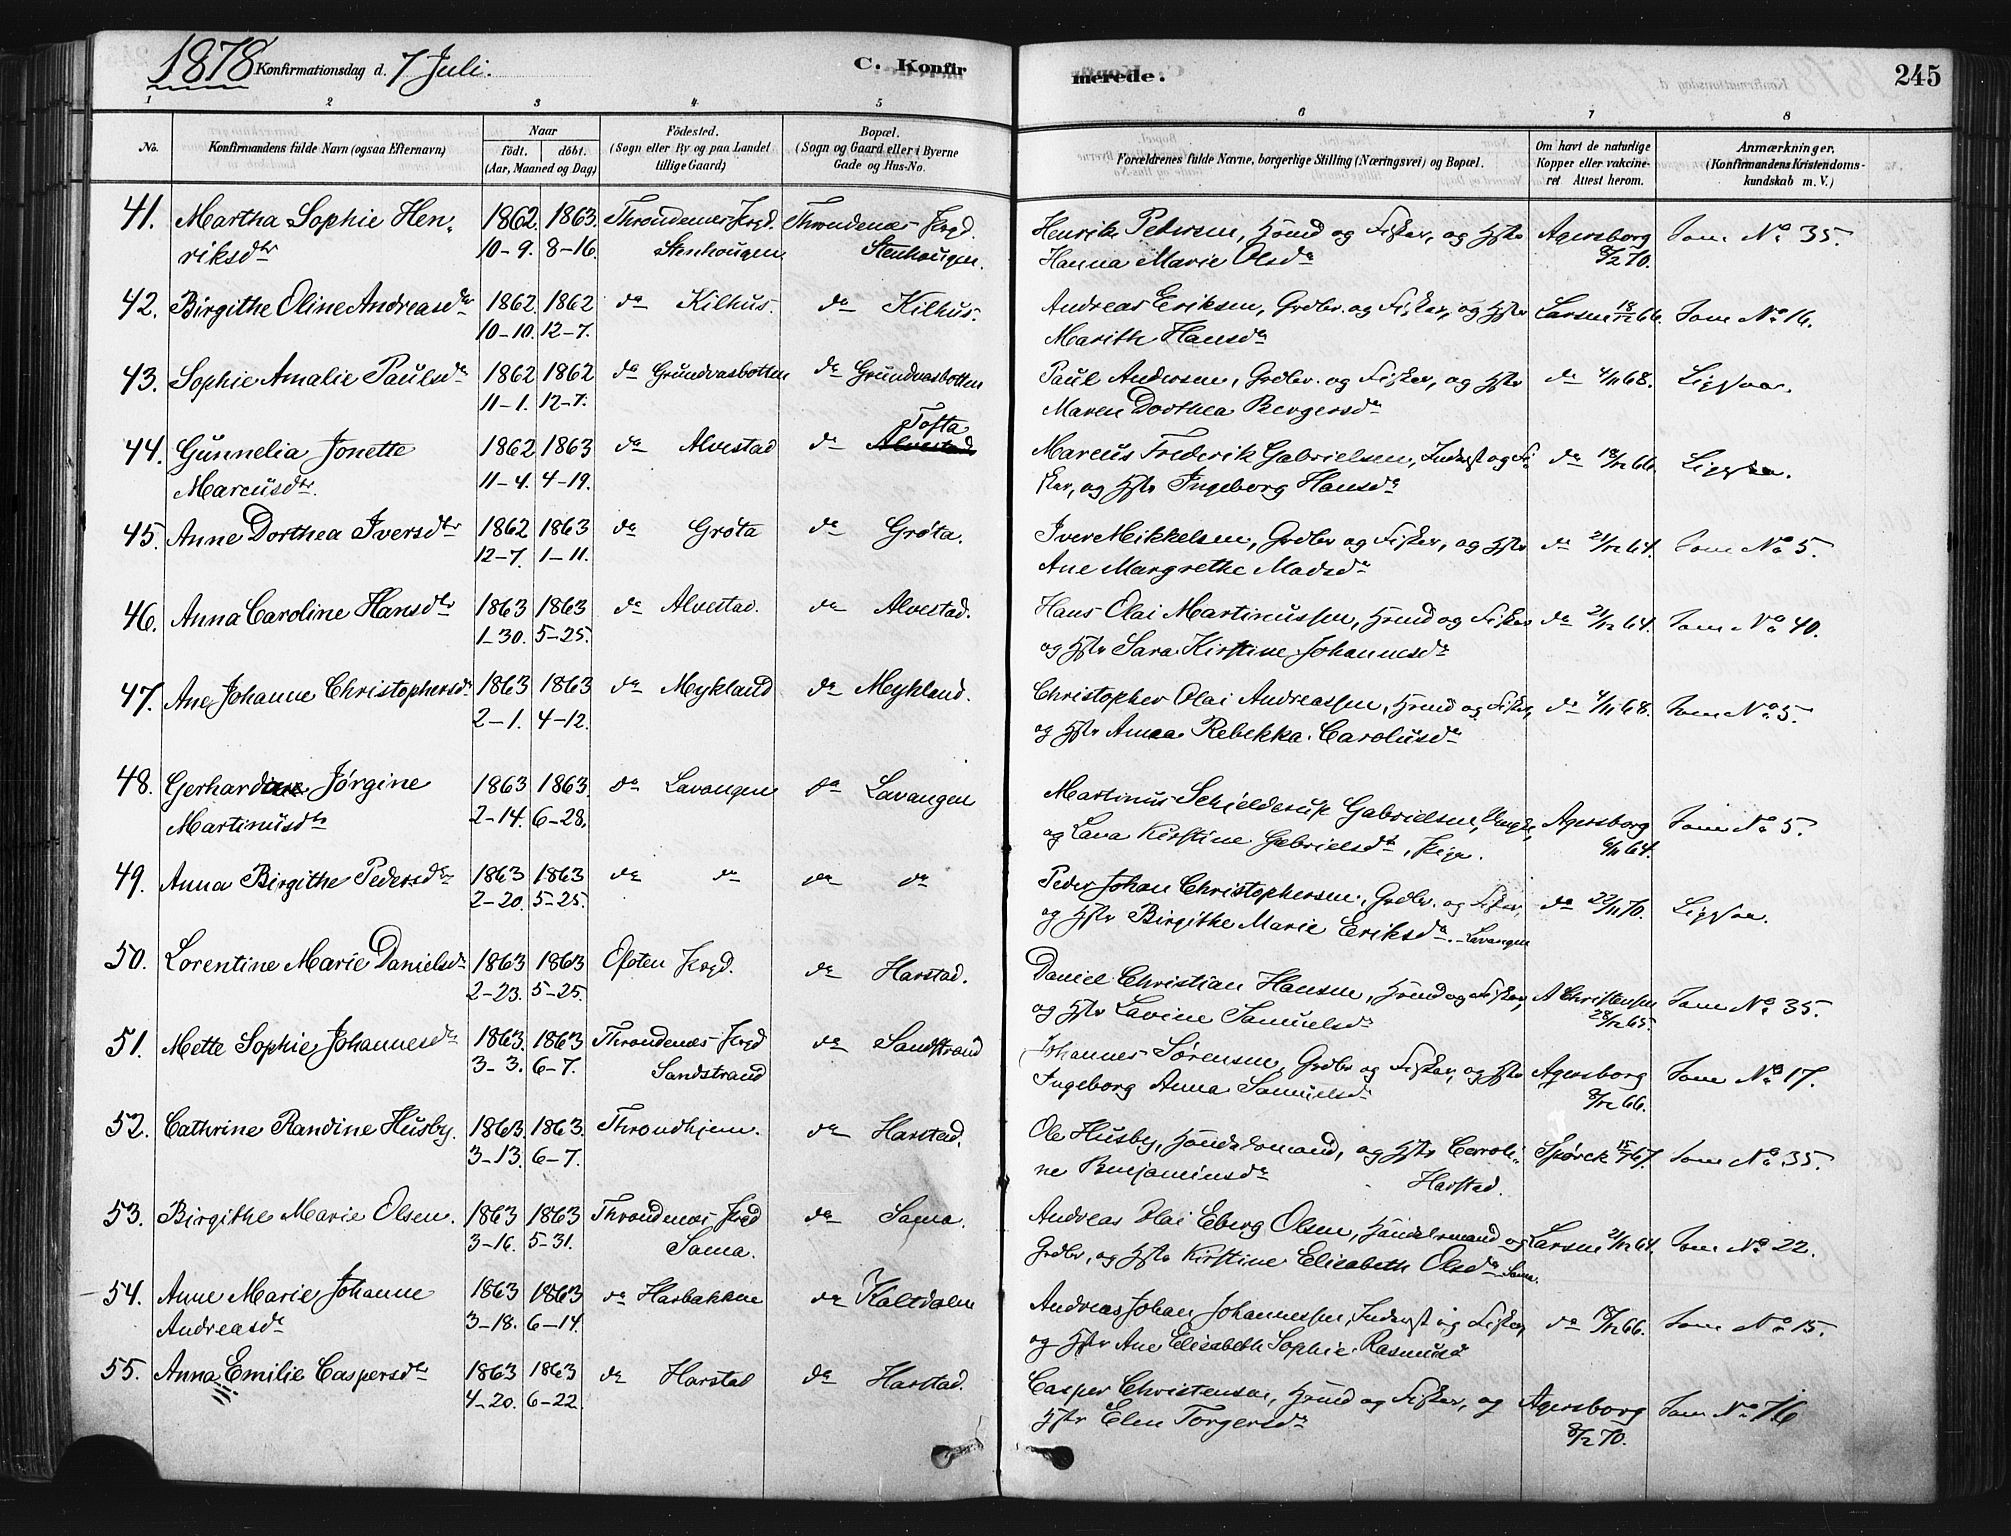 1878 Konfirmationsdag d. 7 Juli. C. Konfirmerede. 245
1 2 3 4 5 6 7 8
No. Konfirmandens fulde Navn (ogsaa Efternavn) Naar födt. döbt. (Aar, Maaned og Dag) Födested. (Sogn eller By og paa Landet tillige Gaard) Bopæl. (Sogn og Gaard eller i Byerne Gade og Hus-No. Forældrenes fulde Navne, borgerlige Stilling (Næringsvei) og Bopæl. Om havt de naturlige Kopper eller vakcineret Attest herom. Anmærkninger. (Konfirmandens Kristendomskundskab m. V.)
41. Martha Sophie Hen- 1862. 1863. Throndenes Prgd. Throndenæs Prgd. Henrik Petersen, Hsmd og Fisker, og Hstr Agersborg Som No 35.
riksdtr 10-9. 8-16. Stenhougen Stenhougen. Hanna Marie Olsdr 8/2 70.
42. Birgithe Oline Andreasdr 1862. 1862 do Kilhus. do Kilhus. Andreas Eriksen, Grdbr. og Fisker, og Hstr Larsen 18/12 66. Som No 16.
10-10. 12-7. Marith Hansdr
43. Sophie Amalie Paulsdr 1862 1862 do Grundvasbotten do Grundvasbotten Paul Andersen, Grdbr. og Fisker, og Hstr do 4/11 68. Ligesaa.
11-1. 12-7. Maren Dorthea Bergersdr
Tofta
44. Gunnelia Jonette 1862 1863 do Alvestad do Alvestad Marcus Frederik Gabrielsen, Inderst og Fi- do 18/12 66. Ligesaa.
Marcusdtr. 11-4. 4-19. sker, og Hstr Ingeborg Hansdr
45. Anne Dorthea Iversdtr 1862 1863 do Grøta do Grøta. Iver Mikkelsen, Grdbr og Fisker, og Hstr do 21/12 64. Som No 5.
12-7. 1-11. Ane Margrethe Madsdr
46. Anna Caroline Hansdtr 1863 1863 do Alvestad. do Alvestad. Hans Olai Martinussen, Hsmd og Fisker do 21/12 64. Som No 40.
1-30. 5-25. og Hstr Sara Kirstine Johannesdr
47. Ane Johanne Christophersdr 1863 1863 do Mykland do Mykland. Christopher Olai Andreassen, Hsmd og Fisker, do 4/11 68. Som No 5.
2-1. 4-12. og Hstr Anna Rebekka Carolusdr
48. Gerhardine Jørgine 1863 1863. do Lavangen do Lavangen Martinus Schjelderup Gabrielsen, Ungk., Agersborg Som No 5.
Martinusdtr 2-14. 6-28. og Lava Kirstine Gabrielsdt, Pige. 6/11 64.
49. Anna Birgithe Pedersdtr 1863 1863 do do do do Peder Johan Christophersen, Grdbr. og Fisker, do 22/11 70. Ligesaa.
2-20. 5-25. og Hstr Birgithe Marie Eriksdr. Lavangen
50. Lorentine Marie Danielsdr 1863 1863 Ofoten Prgd. do Harstad. Daniel Christian Hansen, Hsmd og Fisker, A Christensen Som No 35.
2-23. 5-25. og Hstr Lavine Samuelsdr 28/12 65.
51. Mette Sophie Johannesdr 1863. 1863 Throndenæs Prgd do Sandstrand Johannes Sørensen, Grdbr og Fisker, og Hstr Agersborg Som No 17.
3-3. 6-7. Sandstrand Ingeborg Anna Samuelsdr 8/12 66.
52. Cathrine Randine Husby. 1863. 1863. Throndhjem. do Harstad. Ole Husby, Handelsmand, og Hstr Caroli- Spørck 15/7 67. Som No 35.
3-13. 6-7. ne Benjaminsdr Harstad.
53. Birgithe Marie Olsen. 1863 1863 Throndenæs Prgd do Sama. Andreas Olai Eberg Olsen, Handelsmand og Larsen 21/12 64. Som No 22.
3-16. 5-31. Sama. Grdbr, og Hstr Kirstine Elisabeth Olsdr Sama.
54. Anne Marie Johanne 1863 1863 do Harbakken do Kaltdalen Andreas Johan Johannessen, Inderst og Fisker, do 18/12 66. Som No 15.
Andreasdr 3-18. 6-14. og Hstr Ane Elisabeth Sophie Rasmusd
55. Anna Emilie Caspersdtr 1863 1863 do Harstad do Harstad. Casper Christensen, Hsmd og Fisker, og Agersborg Som No 16
4-20. 6-22. Hstr Elen Torgersdr 8/2 70.